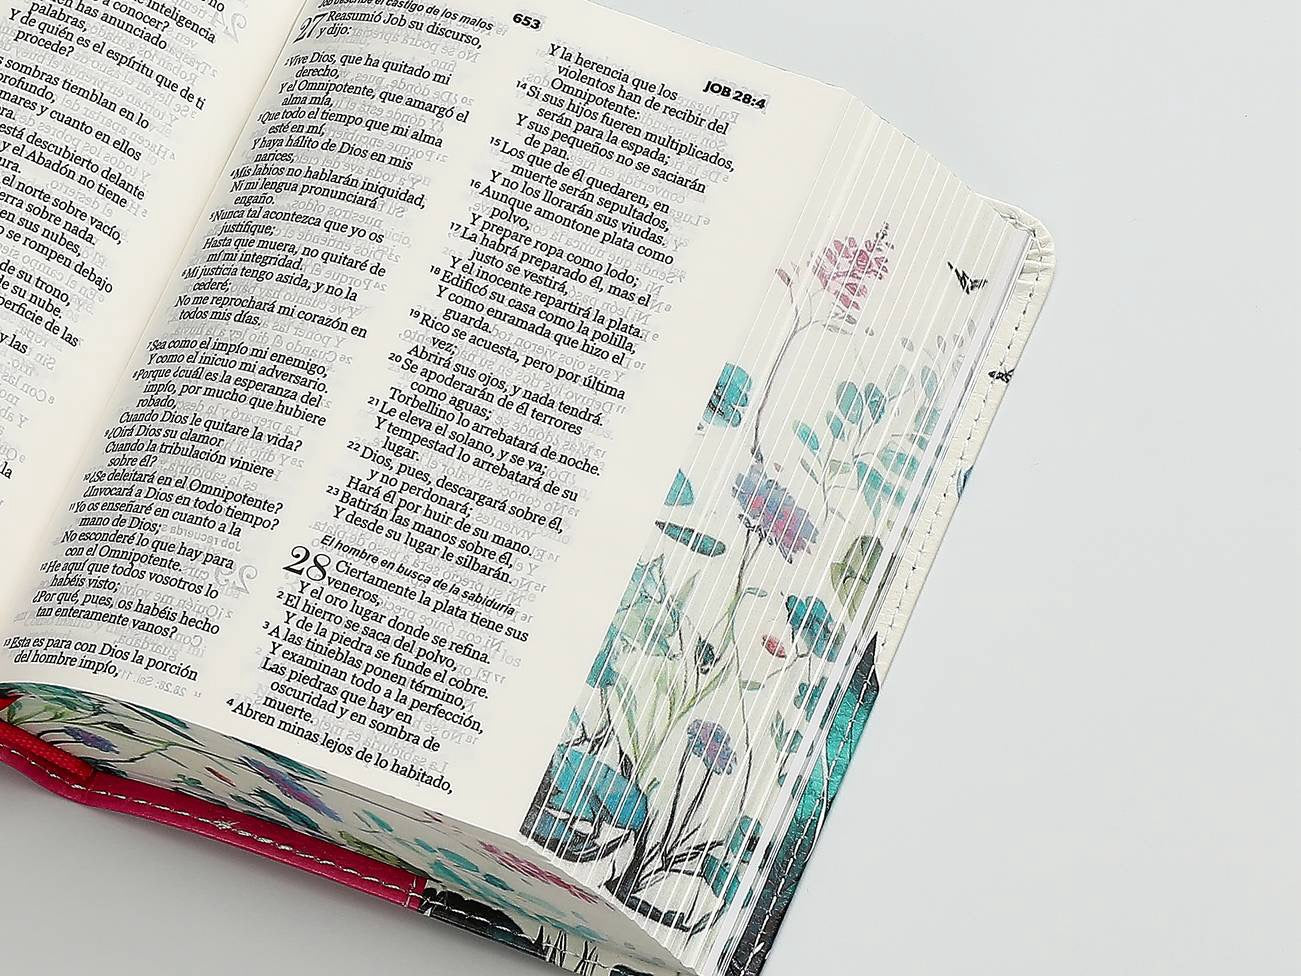 inteligencia
a conocer?
quien has anunciado
palabras,
Y de quién es el espíritu que de ti
procede?
sombras tiemblan en lo
profundo,
mares y cuanto en ellos
está descubierto delante
y el Abadón no tiene
el norte sobre vacío,
sobre nada.
en sus nubes,
se rompen debajo
de su trono,
de su nube.
superficie de las
y las
la
653
JOB 28:4
Job describe el castigo de los malos
27 Reasumió Job su discurso,
y dijo:
2 Vive Dios, que ha quitado mi
derecho,
Y el Omnipotente, que amargó el
alma mía,
3 Que todo el tiempo que mi alma
esté en mí,
Y haya hálito de Dios en mis
narices,
4 Mis labios no hablarán iniquidad,
Ni mi lengua pronunciará
engaño.
5 Nunca tal acontezca que yo os
justifique;
Hasta que muera, no quitaré de
mí mi integridad.
6 Mi justicia tengo asida, y no la
cederé;
No me reprochará mi corazón en
todos mis días.
7 Sea como el impío mi enemigo,
Y como el inicuo mi adversario.
8 Porque ¿cuál es la esperanza del
impío, por mucho que hubiere
robado,
Cuando Dios le quitare la vida?
9 ¿Oirá Dios su clamor
Cuando la tribulación viniere
sobre él?
10 ¿Se deleitará en el Omnipotente?
¿Invocará a Dios en todo tiempo?
11 Yo os enseñaré en cuanto a la
mano de Dios;
No esconderé lo que hay para
con el Omnipotente.
12 He aquí que todos vosotros lo
habéis visto;
¿Por qué, pues, os habéis hecho
tan enteramente vanos?
13 Esta es para con Dios la porción
del hombre impío,
Y la herencia que los
violentos han de recibir del
Omnipotente:
14 Si sus hijos fueren multiplicados,
serán para la espada;
Y sus pequeños no se saciarán
de pan.
15 Los que de él quedaren, en
muerte serán sepultados,
Y no los llorarán sus viudas.
16 Aunque amontone plata como
polvo,
Y prepare ropa como lodo;
17 La habrá preparado él, mas el
justo se vestirá,
Y el inocente repartirá la plata.
18 Edificó su casa como la polilla,
Y como enramada que hizo el
guarda.
19 Rico se acuesta, pero por última
vez;
Abrirá sus ojos, y nada tendrá.
20 Se apoderarán de él terrores
como aguas;
Torbellino lo arrebatará de noche.
21 Le eleva el solano, y se va;
Y tempestad lo arrebatará de su
lugar.
22 Dios, pues, descargará sobre él,
y no perdonará;
Hará él por huir de su mano.
23 Batirán las manos sobre él,
Y desde su lugar le silbarán.
El hombre en busca de la sabiduría
28 Ciertamente la plata tiene sus
veneros,
Y el oro lugar donde se refina.
2 El hierro se saca del polvo,
Y de la piedra se funde el cobre.
3 A las tinieblas ponen término,
Y examinan todo a la perfección,
Las piedras que hay en
oscuridad y en sombra de
muerte.
4 Abren minas lejos de lo habitado,